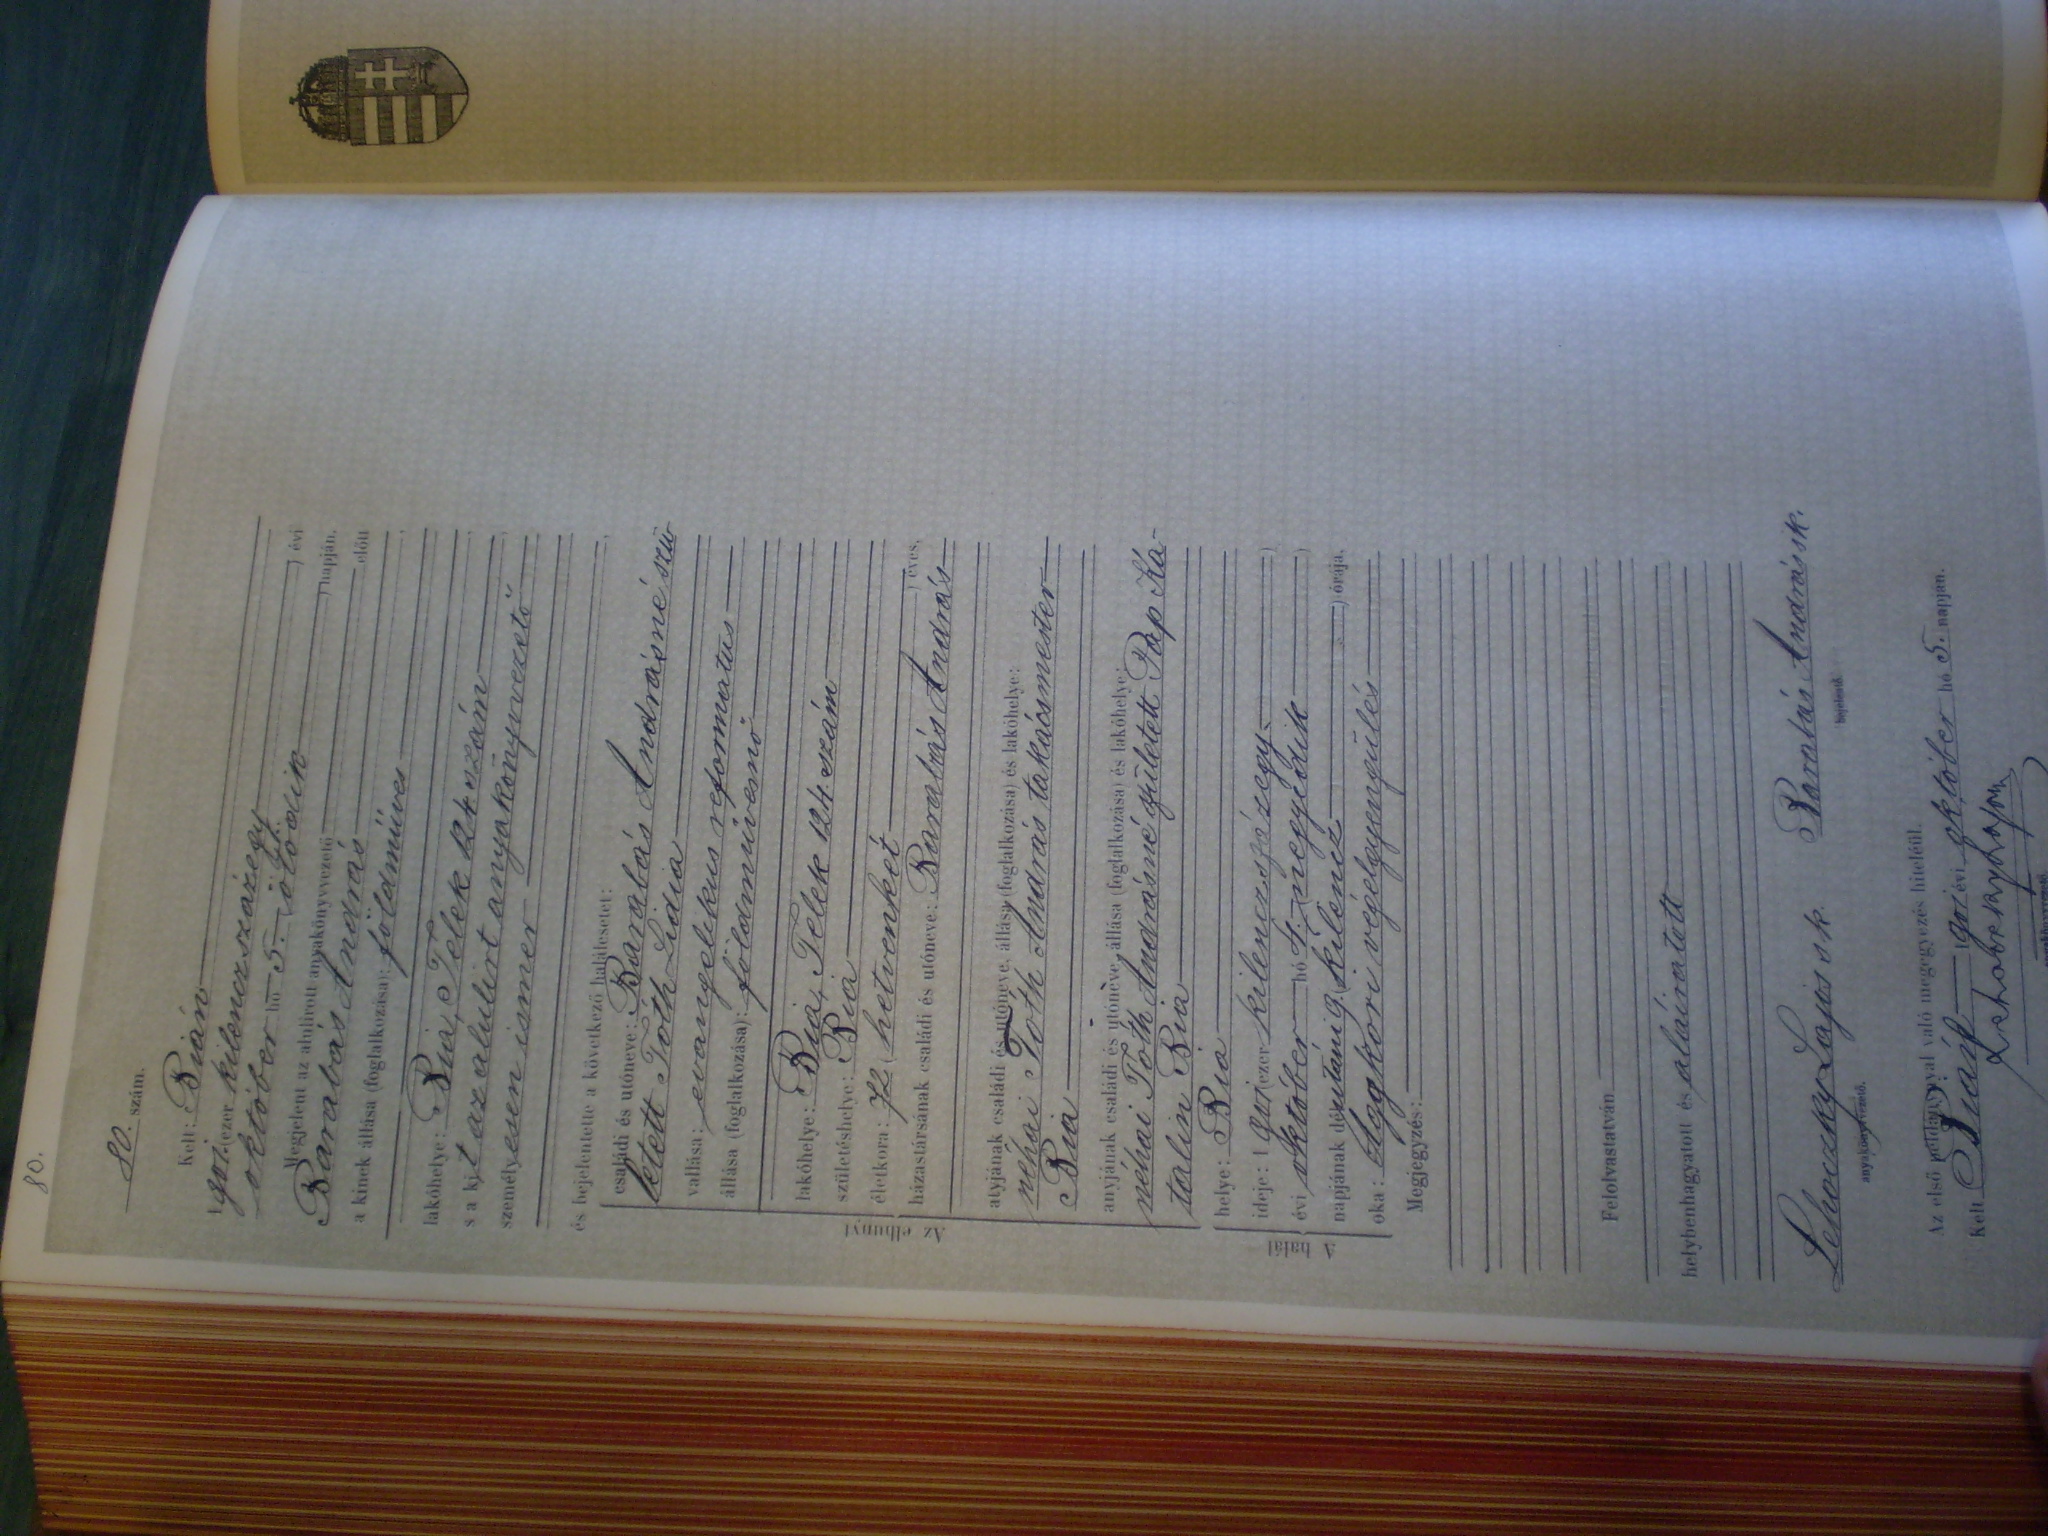 80.
80. szám.
Kelt: Bián
1901. (ezer kilenczszázegy ) évi
október hó 5. (ötödik ) napján.
Megjelent az alulírott anyakönyvvezető előtt
Barabás András
a kinek állása (foglalkozása): földmíves
lakóhelye: Bia, Telek 124 szám
s a kit az alulírt anyakönyvvezető
személyesen ismer
és bejelentette a következő halálesetet:
Az elhunyt
családi és utóneve: Barabás Andrásné szü-
letett Tóth Lidia
vallása: evangelikus reformatus
állása (foglalkozása): földmívesnő
lakóhelye: Bia, Telek 124. szám
születéshelye: Bia
életkora: 72 (hetvenkét ) éves.
házastársának családi és utóneve: Barabás András
atyjának családi és utóneve, állása (foglalkozása) és lakóhelye:
néhai Tóth András takácsmester
Bia
anyjának családi és utóneve, állása (foglalkozása) és lakóhelye:
néhai Tóth Andrásné született Pap Ka-
talin Bia
A halál
helye: Bia
ideje: 1901 (ezer kilenczszázegy )
évi október hó 4. (negyedik )
napjának délutáni 9 (kilencz ) órája.
oka: aggkori végelgyengülés
Megjegyzés:
Felolvastatván
helybenhagyatott és aláíratott
Lehoczky Lajos sk. Barabás András sk.
anyakönyvvezető. bejelentő.
Az első példánnyal való megegyezés hiteléül.
Kelt Bián 1901 évi október hó 5. napján.
Lehoczky Lajos
anyakönyvvezető